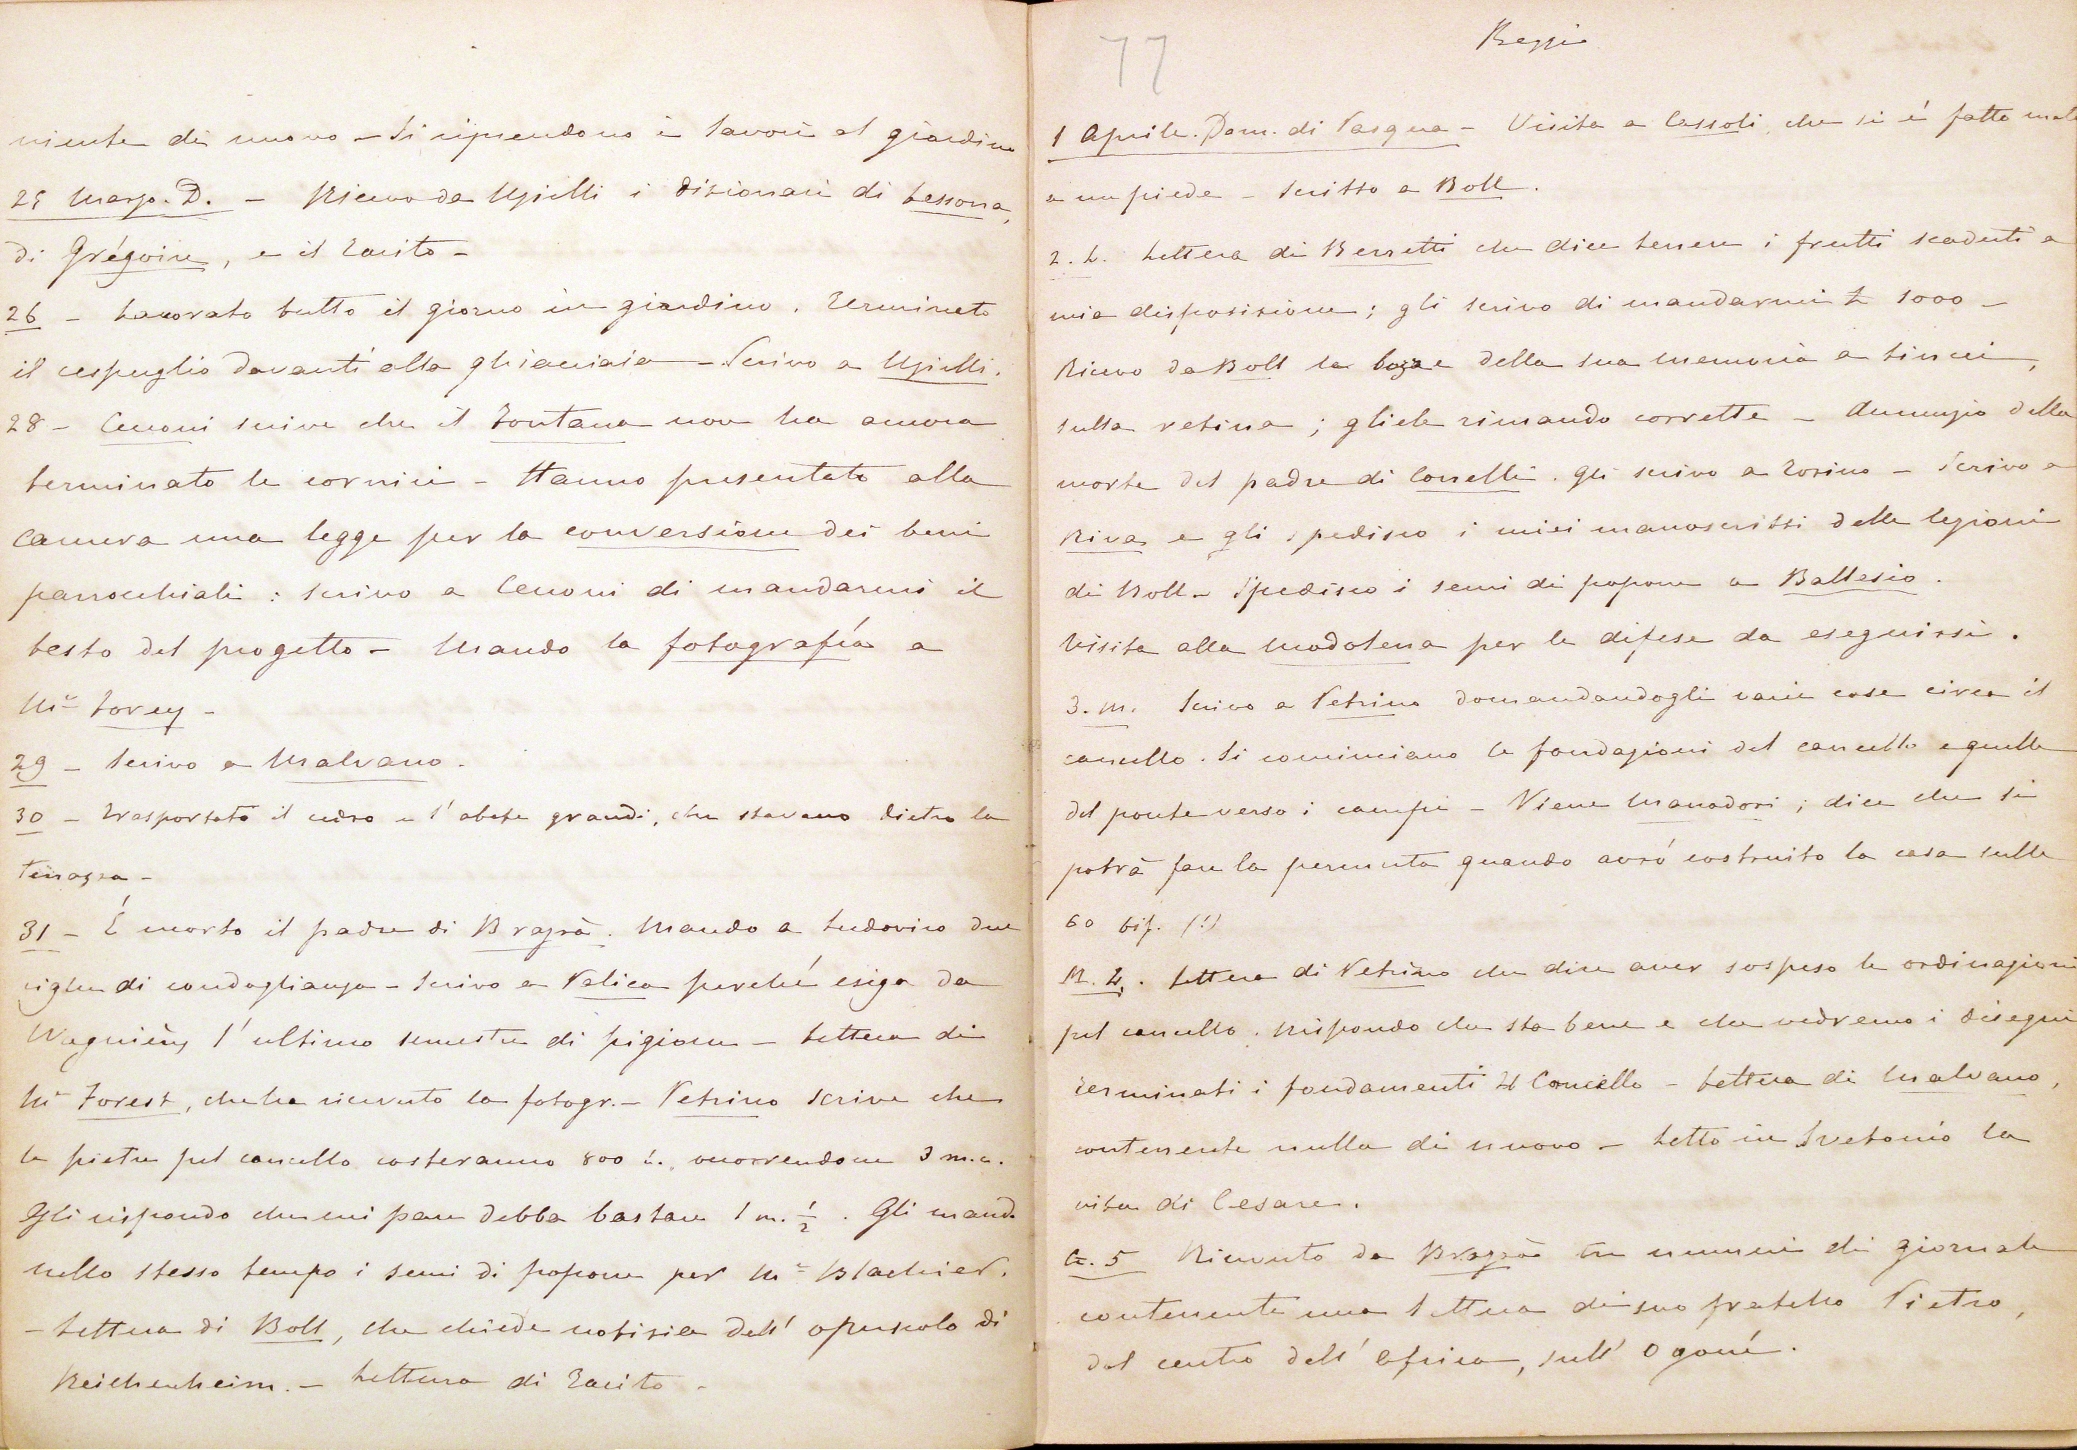 niente di nuovo – Si riprendono i lavori al giardino
25 Marzo. D. – Ricevo da Uzielli i dizionari di Lessona,
di Grégoire, e il Tacito –
26 – Lavorato tutto il giorno in giardino. Terminato
il cespuglio davanti alla ghiacciaia – Scrivo a Uzielli.
28 – Cenoni scrive che il Fontana non ha ancora
terminato le cornici – Hanno presentato alla
Camera una legge per la conversione dei beni
parrocchiali : scrivo a Cenoni di mandarmi il
testo del progetto – Mando la fotografía a
Mr Forey –
29 – Scrivo a Malvano.
30 – Trasportato il cedro e l'abete grandi, che stavano dietro la
terrazza –
31 – É morto il padre di Brazzà. Mando a Ludovico due
righe di condoglianza – Scrivo a Velica perché esiga da
Wagnière l'ultimo semestre di pigione – Lettera di
Mr Forest, che ha ricevuto la fotogr. – Vetrino scrive che
le pietre pel cancello costeranno 800 L., occorrendone 3 m.c.
Gli rispondo che mi pare debba bastare 1 m. 1/2 . Gli mando
nello stesso tempo i semi di popone per Mr Blachier.
– Lettera di Boll, che chiede notizie dell' opuscolo di
Reichenheim. – Lettura di Tacito –
77
Reggio
1 Aprile. Dom. di Pasqua – Visita a Cassoli, che si é fatto male
a un piede – Scritto a Boll.
2. L. Lettera di Berretti che dice tenere i frutti scaduti a
mia disposizione; gli scrivo di mandarmi £ 1000 –
Ricevo da Boll le bozze della sua memoria a Lincei,
sulla retina ; gliele rimando corrette – Annunzio della
morte del padre di Correlli. Gli scrivo a Torino – Scrivo a
Riva e gli spedisco i miei manoscritti delle lezioni
di Boll – Spedisco i semi di popone a Ballesio.
Visita alla Modolena per le difese da eseguirsi.
3. M. Scrivo a Vetrino domandandogli varie cose circa il
cancello. Si cominciano le fondazioni del cancello e quelle
del ponte verso i campi – Viene Manodori ; dice che si
potrà fare la permuta quando avró costruito la casa sulle
60 bif. (!)
M. 4. Lettera di Vetrino che dice aver sospeso le ordinazioni
pel cancello. Rispondo che sta bene e che vedremo i disegni
Terminati i fondamenti del Cancello – Lettera di Malvano,
contenente nulla di nuovo – Letto in Svetonio la
vita di Cesare.
G. 5 Ricevuto da Brazzà tre numeri di giornale
contenente una lettera di suo fratello Pietro,
dal centro dell' Africa, sull' Ogoué.